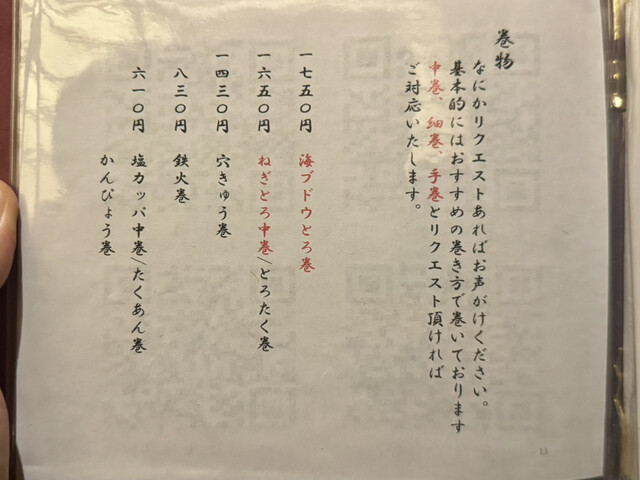 巻物
なにかリクエストあればお声がけください。
基本的にはおすすめの巻き方で巻いております
中巻、細巻、手巻とリクエスト頂ければ
ご対応いたします。
一七五〇円 海ブドウとろ巻
一六五〇円 ねぎとろ中巻/とろたく巻
一四三〇円 穴きゅう巻
八三〇円 鉄火巻
六一〇円 塩カッパ中巻/たくあん巻
かんぴょう巻